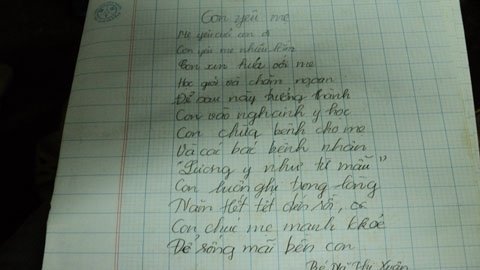 Con yêu mẹ
Mẹ yêu của con ơi
Con yêu mẹ nhiều lắm
Con xin hứa với mẹ
Học giỏi và chăm ngoan
Để sau này trưởng thành
Con vào nghành y học
Con chữa bệnh cho mẹ
Và các bác bệnh nhân
"Lương y như từ mẫu"
Con luôn ghi trong lòng
Năm hết tết đến rồi,
Con chúc mẹ mạnh khoẻ
Để sống mãi bên con
Thị Xuân